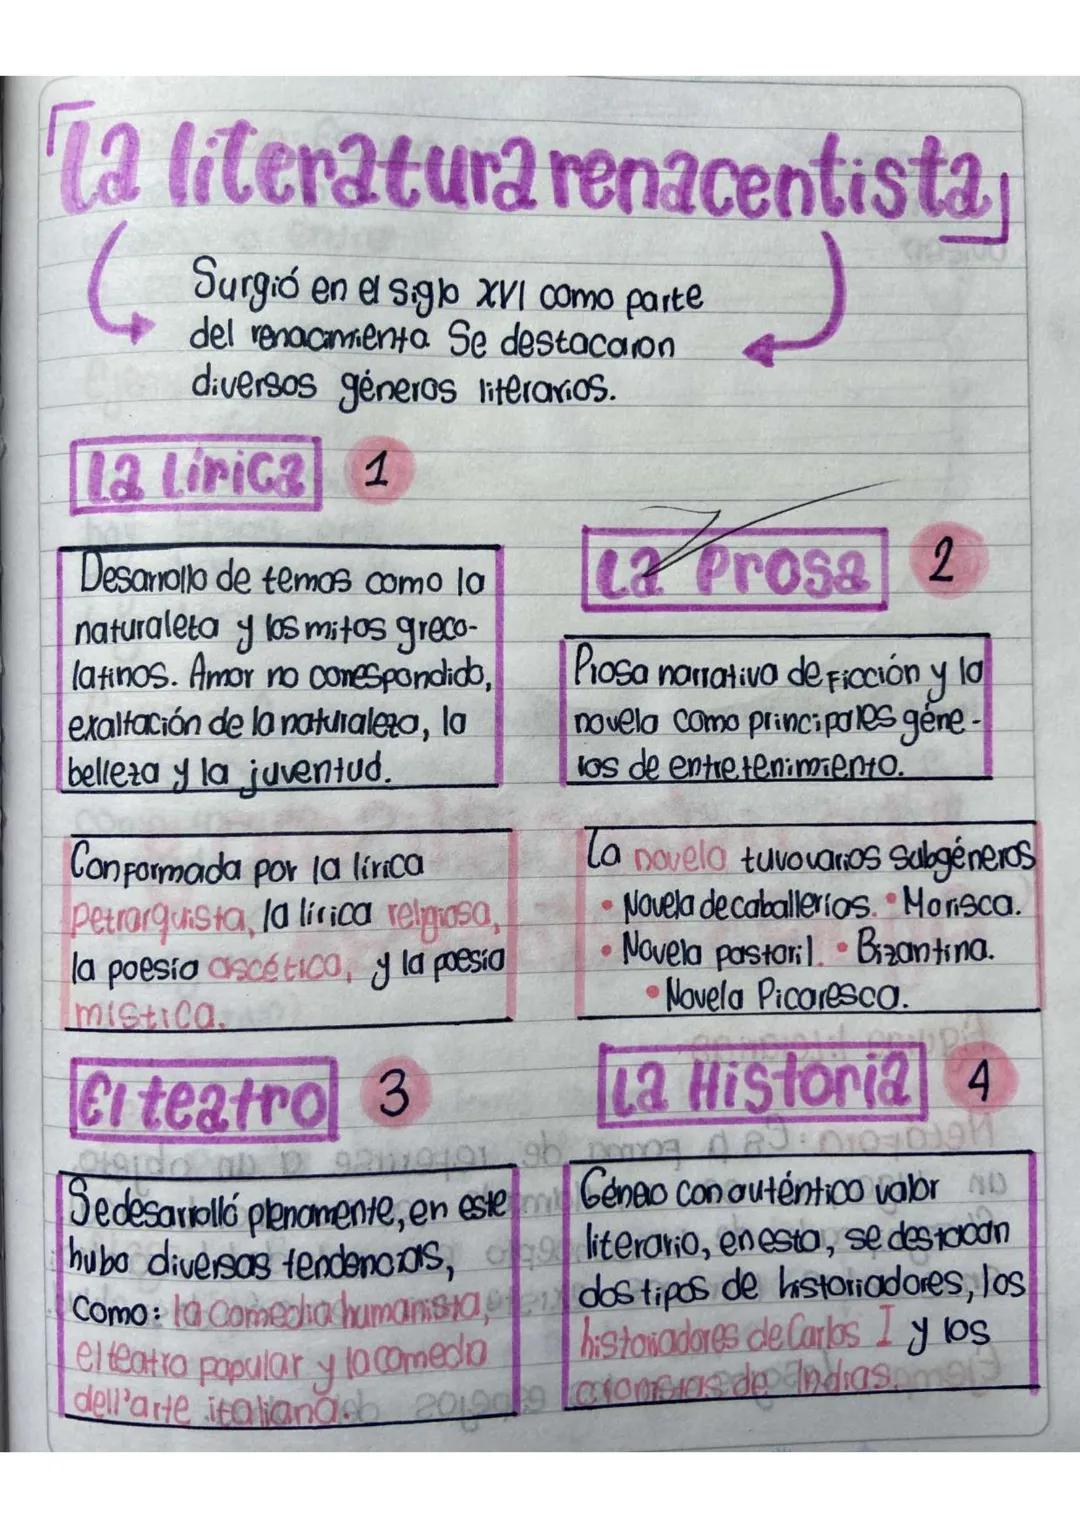 La literatura renacentista
Surgió en el siglo XVI como parte
del renacimiento Se destacaron
diversos géneros literarios.
La Lírica 1
Desarrollo de temas como la
naturaleza y los mitos greco-
latinos. Amor no correspondido,
exaltación de la naturaleza, la
belleza y la juventud.
Conformada por la lírica
petrarquista, la lírica religiosa,
la poesía ascética, y la poesía
mística.
La Prosa 2
Prosa narrativa de Ficción y la
novela como principales géne-
ros de entretenimiento.
La novela tuvo varios subgéneros
• Novela de caballerías. • Morisca.
• Novela pastoril. • Bizantina.
• Novela Picaresca.
El teatro 3
Se desarrolló plenamente, en este
hubo diversas tendencias,
como: la comedia humanista,
el teatro popular y la comedia
dell'arte italiana.
La Historia 4
Género con auténtico valor
literario, en esta, se destacan
dos tipos de historiadores, los
historiadores de Carlos I y los
cronistas de Indias.